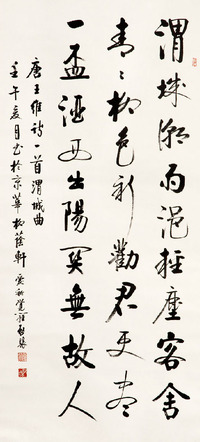 渭城朝雨浥輕塵客舍
青々柳色新勸君更盡
一盃酒西出陽關無故人
唐王維詩一首渭城曲
壬午夏月書於京華松蔭軒愛新覺羅啟驤